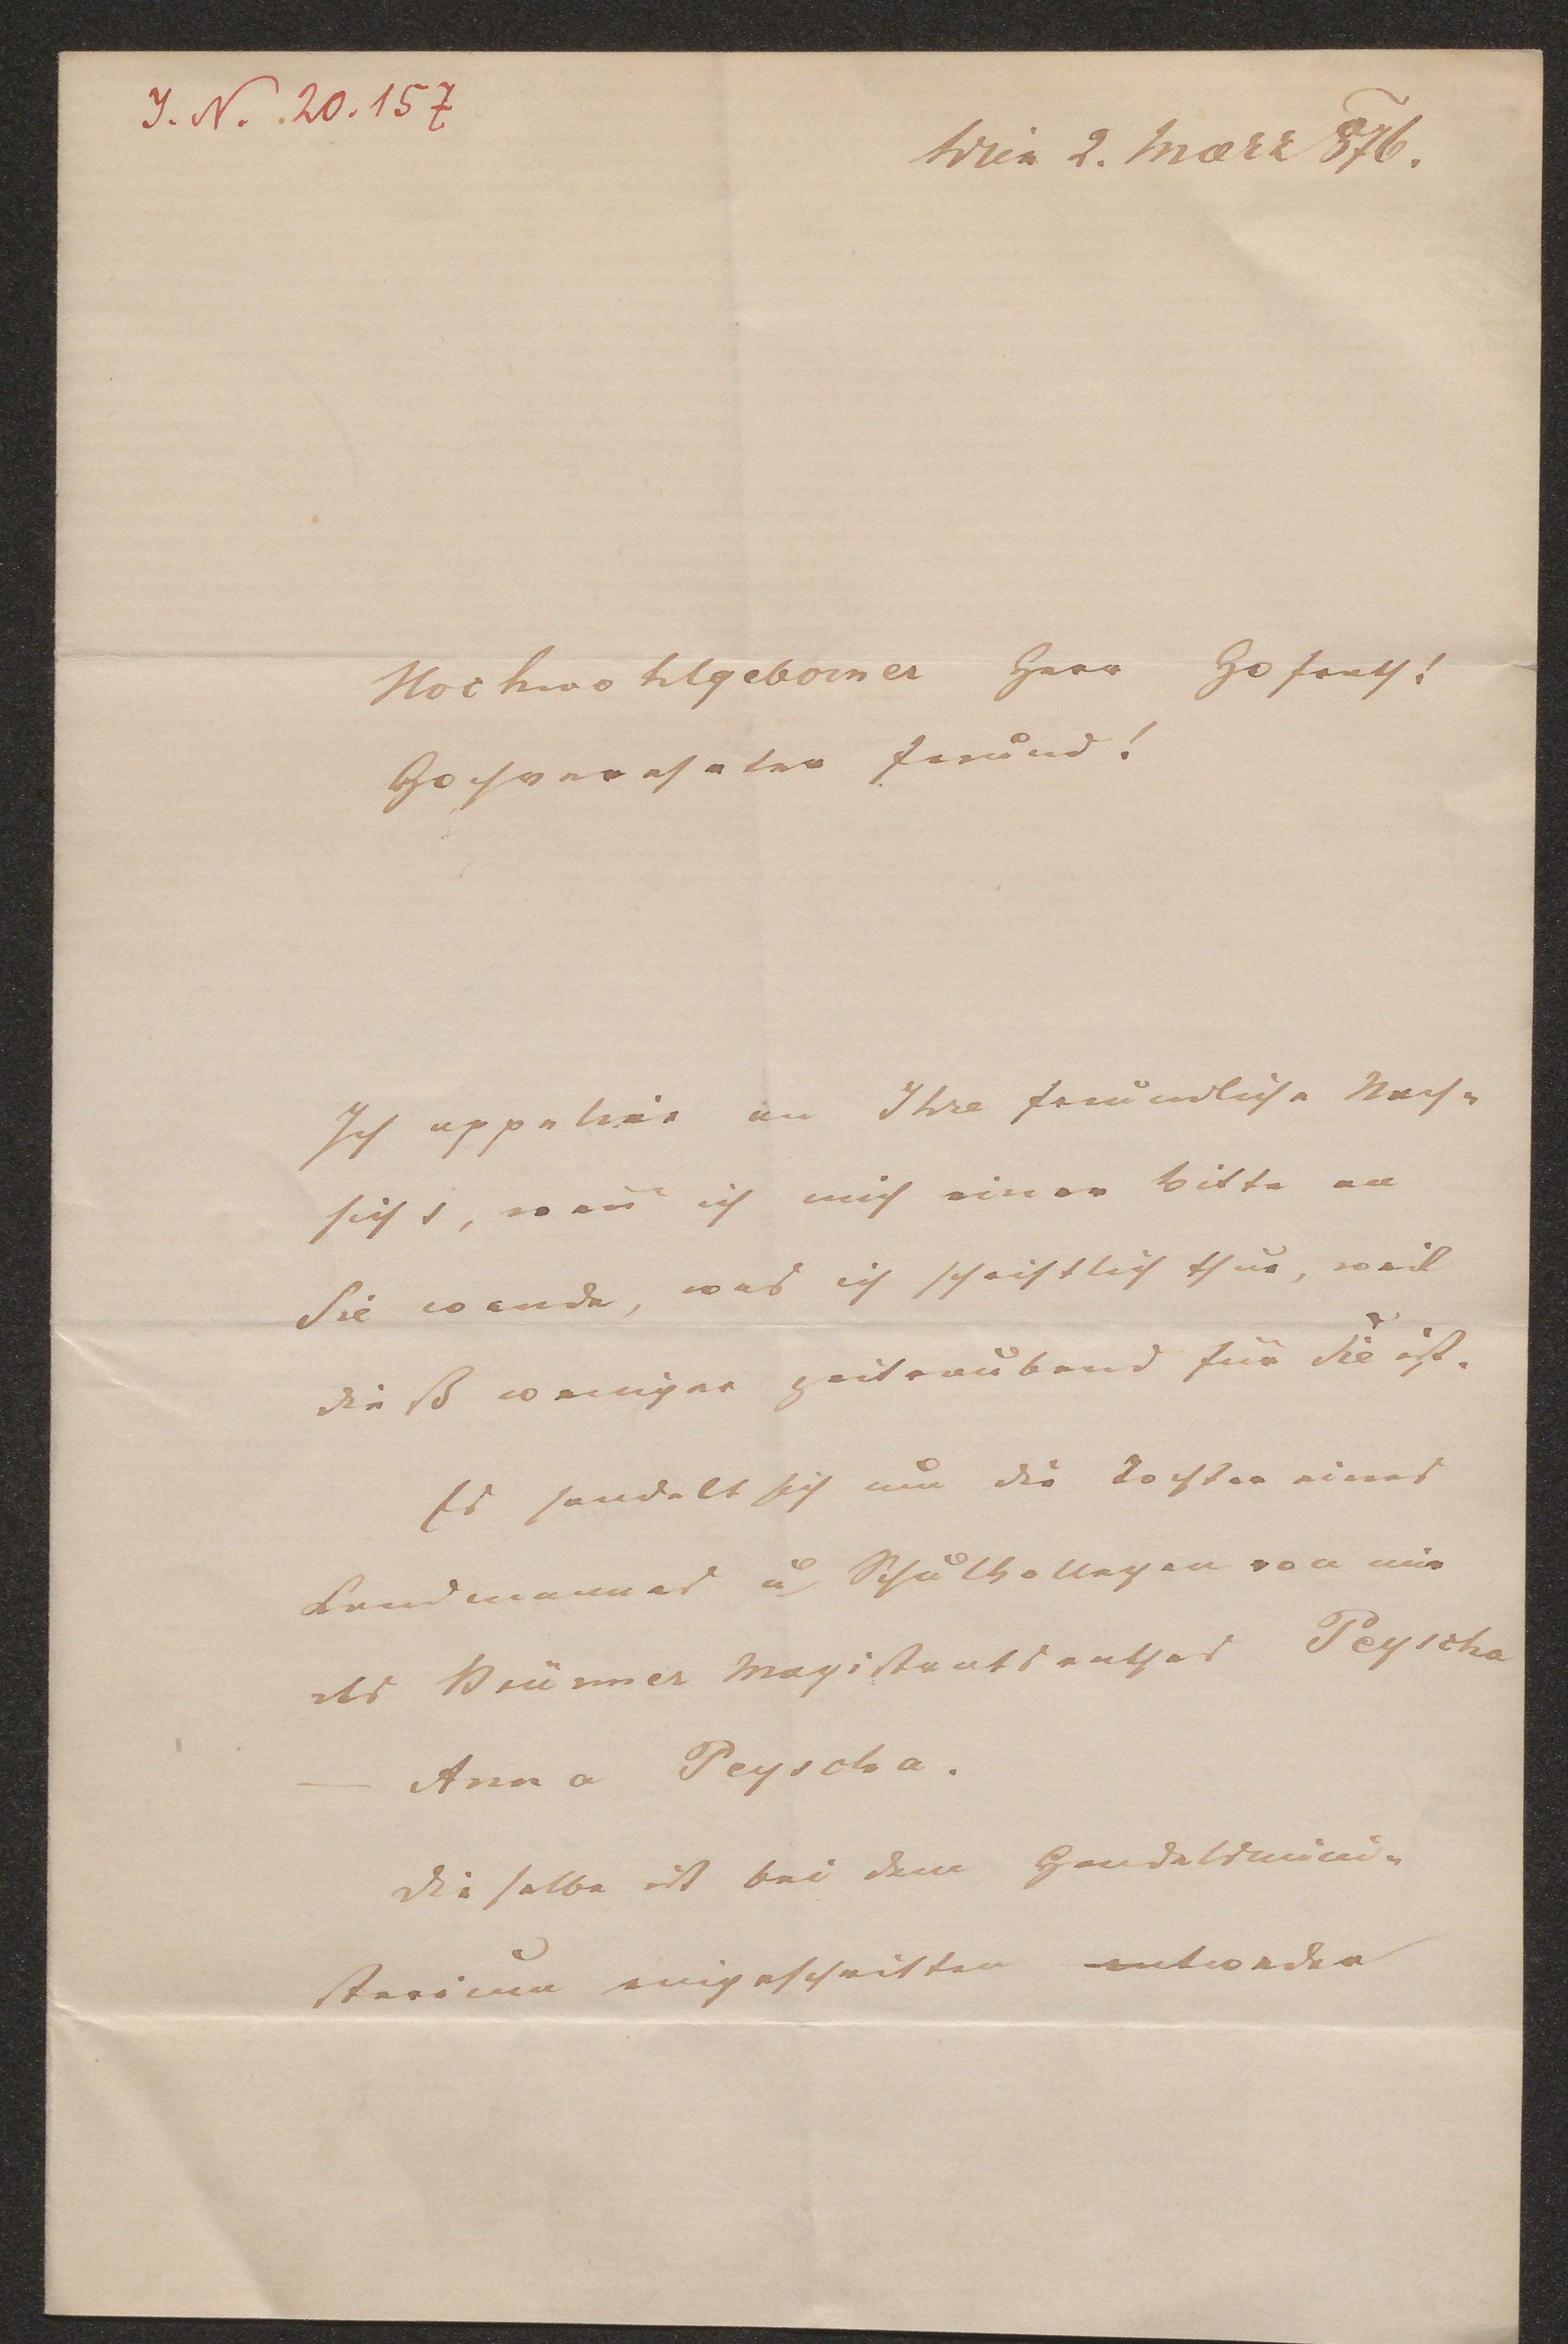 I. N. 20.157
Wien 2. Maerz 876.
Hochwohlgeborner Herr Hofrath!
Hochverehrter Freund!
Ich appelire an Ihre freundliche Nach-
sicht, wen̅ ich mich einer Bitte an
Sie wende, was ich schriftlich thue, weil
dieß weniger zeitraubend für Sie ist.
Es handelt sich um die Tochter eines
Landmannes u Schulkollegen von mir
des Brünner Magistratsrathes Peyscha
— Anna Peyscha.
Dieselbe ist bei dem Handelsmini-
sterium eingeschritten entweder